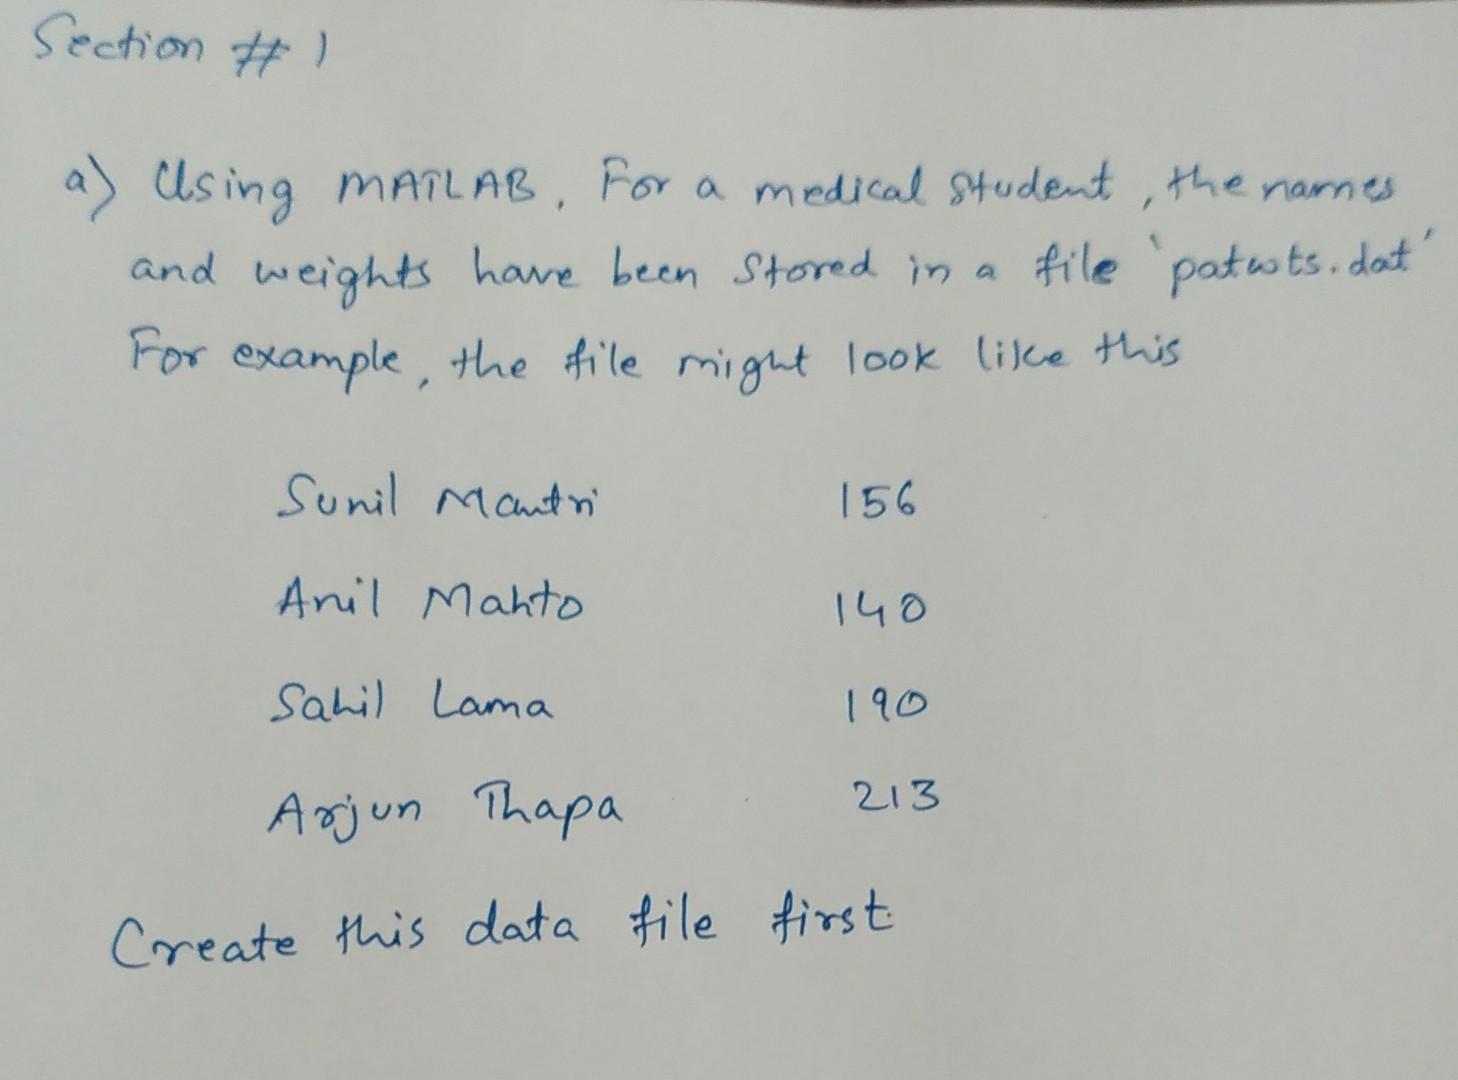 Section # 1
a) Using MATLAB, For a medical student, the names
and weights have been stored in a file 'patwts.dat'
For example, the file might look like this
Sunil Mantri 156
Anil Mahto 140
Sahil Lama 190
Arjun Thapa 213
Create this data file first.